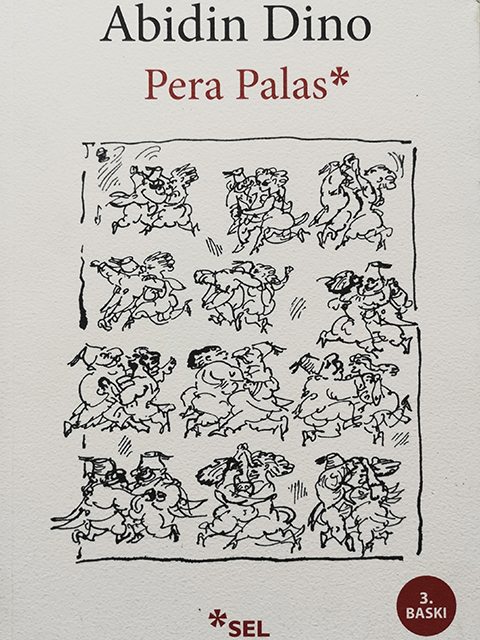 Abidin Dino
Pera Palas*
3.
BASKI
*SEL